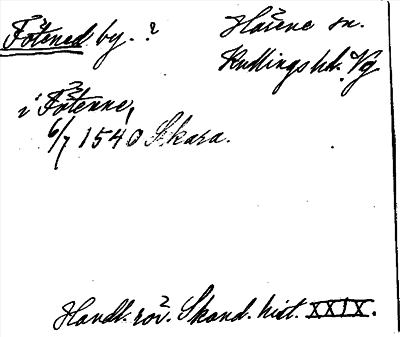 Fötened by. ?
Hasene sn.
Kullings hd. Vg
i Fötenne,
6/7 1540 Skara.
Handl. rör. Skand. hist. XXIX.